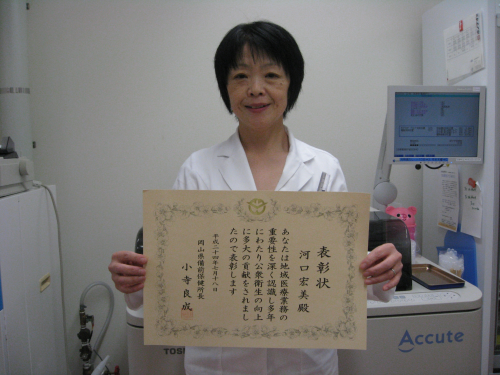 表彰状
河口宏美殿
あなたは地域医療業務の
重要性を深く認識し多年
にわたり公衆衛生の向上
に多大の貢献をされまし
たので表彰します
平成二十四年七月十八日
岡山県備前保健所長
小寺良成
TOSH
Accute